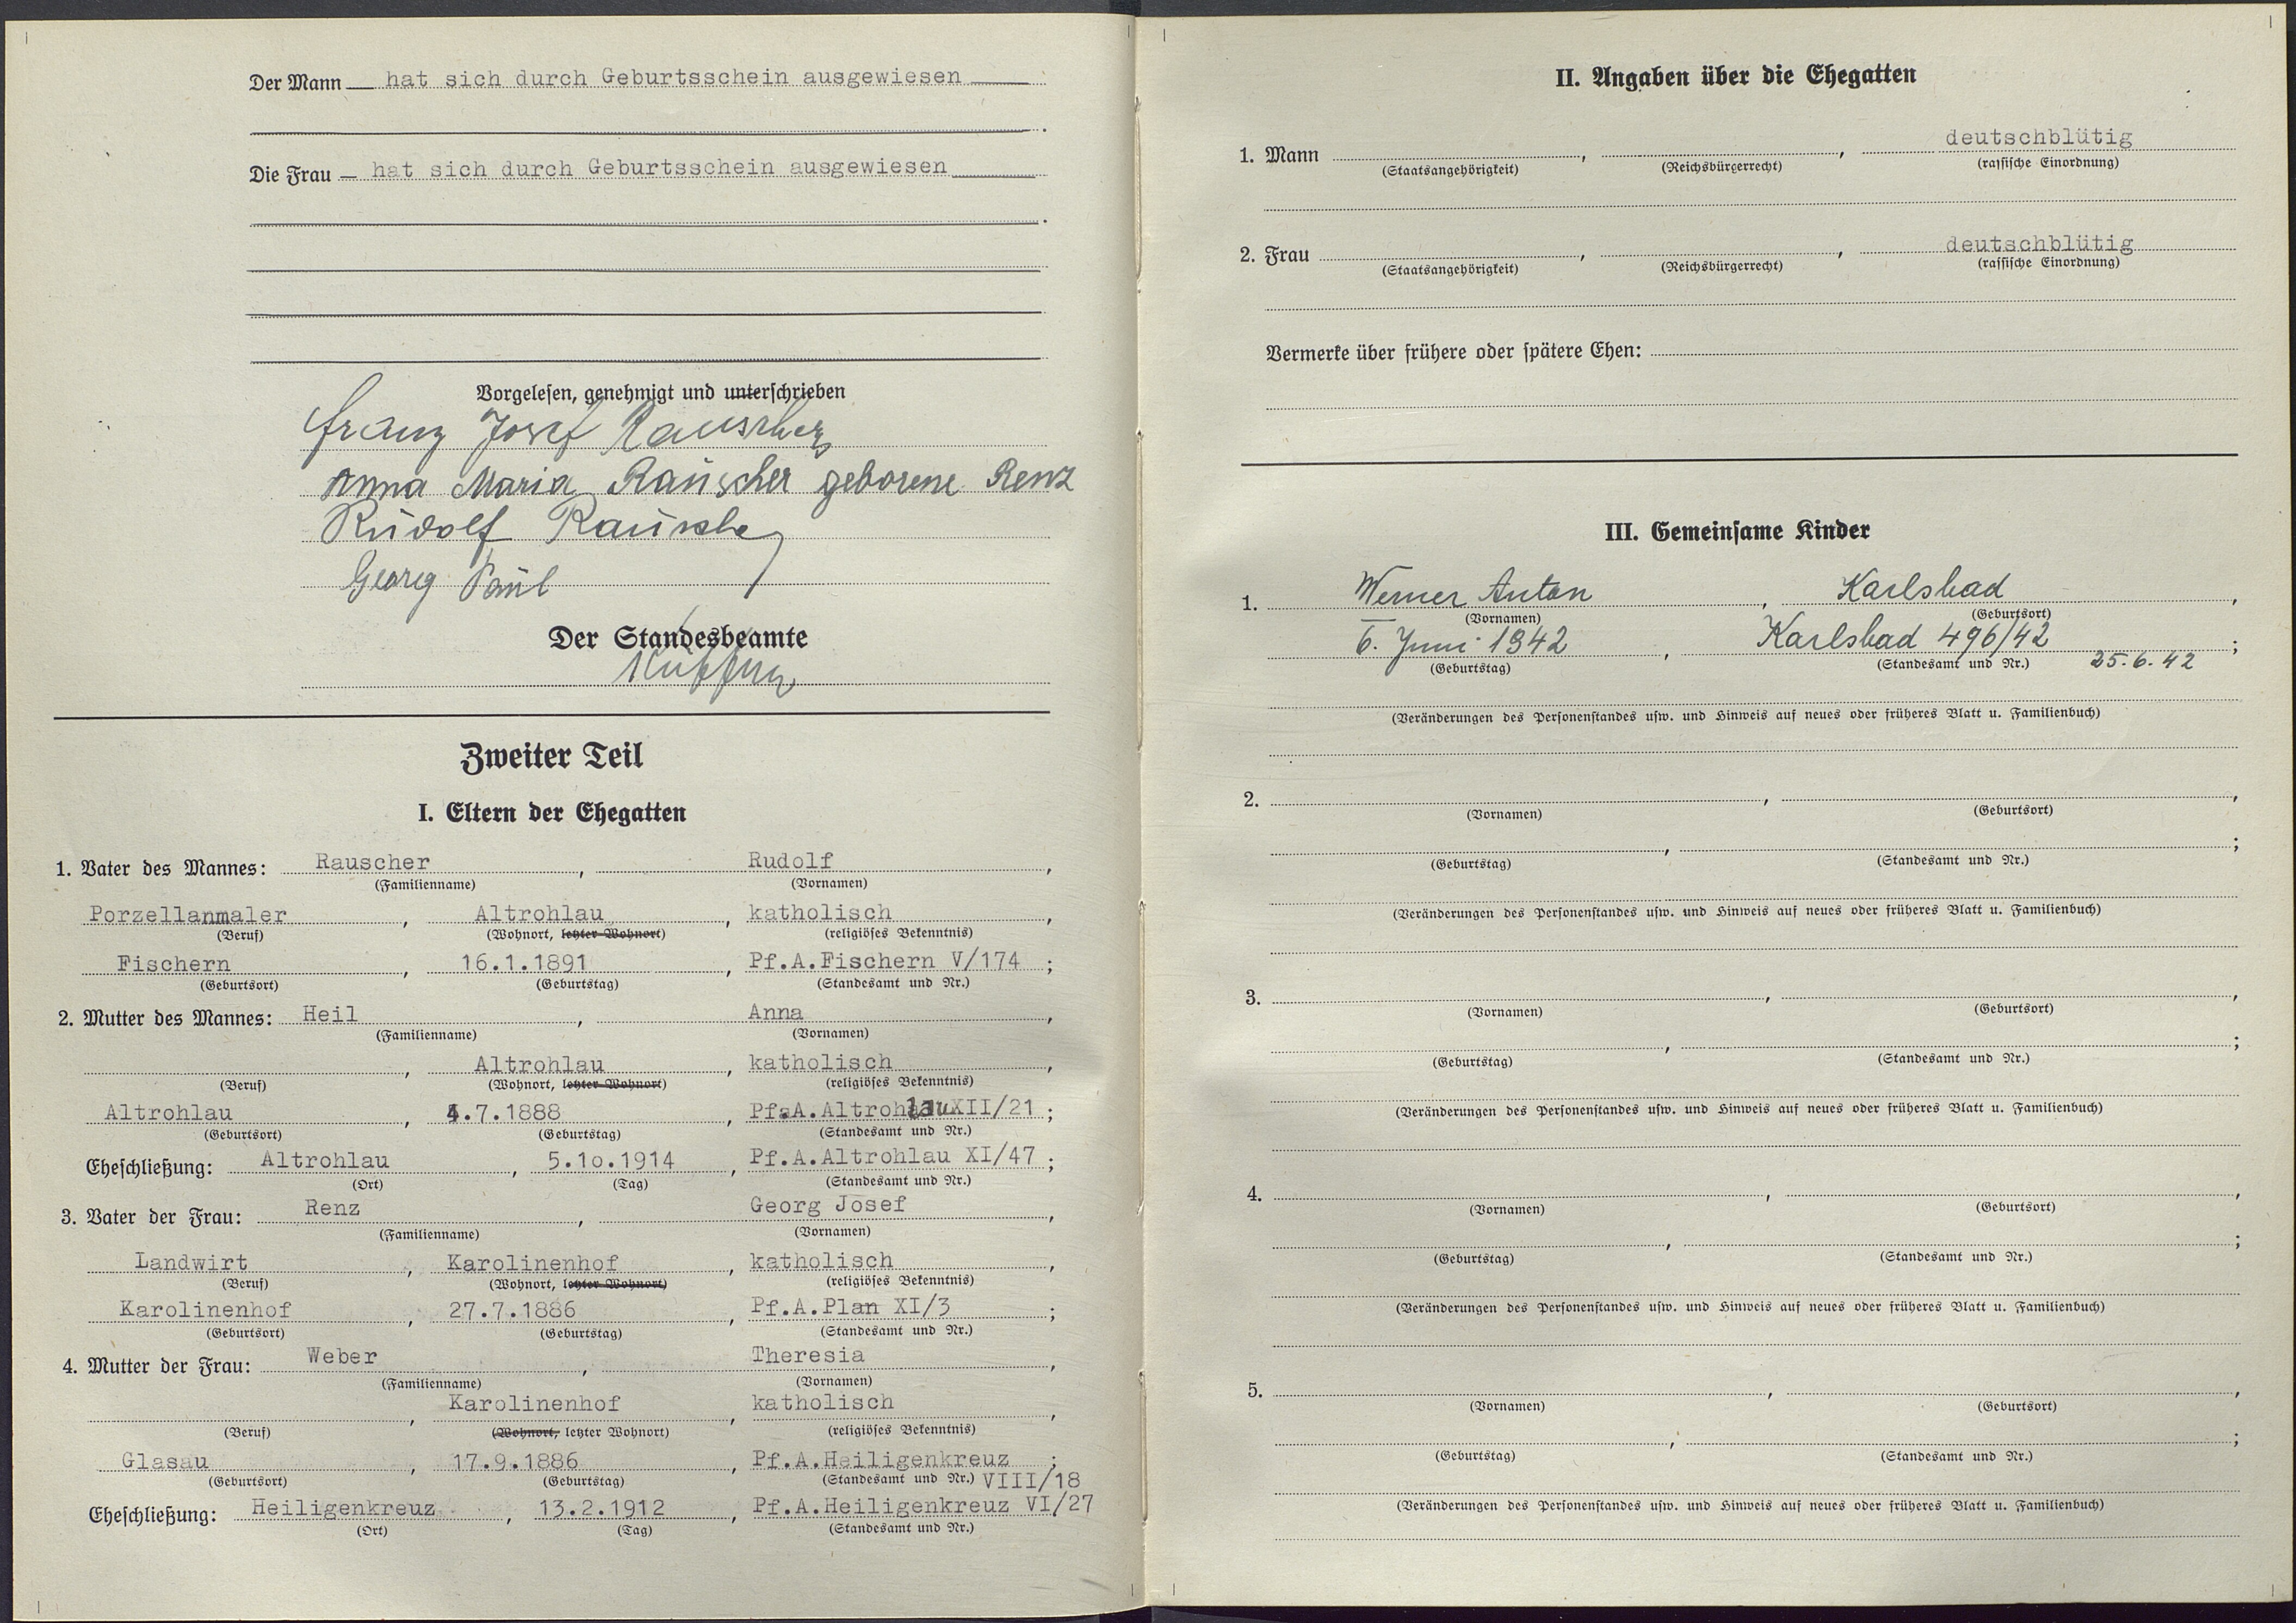 Der Mann — hat sich durch Geburtsschein ausgewiesen
Die Frau — hat sich durch Geburtsschein ausgewiesen
Vorgelesen, genehmigt und unterschrieben
Franz Josef Rauscher
Anna Maria Rauscher geborene Renz
Rudolf Rauscher
Georg Paul
Der Standesbeamte
Zweiter Teil
I. Eltern der Ehegatten
1. Vater des Mannes: Rauscher, Rudolf,
(Familienname) (Vornamen)
Porzellanmaler, Altrohlau, katholisch,
(Beruf) (Wohnort, letzter Wohnort) (religiöses Bekenntnis)
Fischern, 16.1.1891, Pf.A.Fischern V/174;
(Geburtsort) (Geburtstag) (Standesamt und Nr.)
2. Mutter des Mannes: Heil, Anna,
(Familienname) (Vornamen)
, Altrohlau, katholisch,
(Beruf) (Wohnort, letzter Wohnort) (religiöses Bekenntnis)
Altrohlau, 4.7.1888, Pf.A.Altrohlau XII/21;
(Geburtsort) (Geburtstag) (Standesamt und Nr.)
Eheschließung: Altrohlau, 5.1o.1914, Pf.A.Altrohlau XI/47;
(Ort) (Tag) (Standesamt und Nr.)
3. Vater der Frau: Renz, Georg Josef,
(Familienname) (Vornamen)
Landwirt, Karolinenhof, katholisch,
(Beruf) (Wohnort, letzter Wohnort) (religiöses Bekenntnis)
Karolinenhof, 27.7.1886, Pf.A.Plan XI/3;
(Geburtsort) (Geburtstag) (Standesamt und Nr.)
4. Mutter der Frau: Weber, Theresia,
(Familienname) (Vornamen)
, Karolinenhof, katholisch,
(Beruf) (Wohnort, letzter Wohnort) (religiöses Bekenntnis)
Glasau, 17.9.1886, Pf.A.Heiligenkreuz;
(Geburtsort) (Geburtstag) (Standesamt und Nr.) VIII/18
Eheschließung: Heiligenkreuz, 13.2.1912, Pf.A.Heiligenkreuz VI/27
(Ort) (Tag) (Standesamt und Nr.)
II. Angaben über die Ehegatten
1. Mann , , deutschblütig
(Staatsangehörigkeit) (Reichsbürgerrecht) (rassische Einordnung)
2. Frau , , deutschblütig
(Staatsangehörigkeit) (Reichsbürgerrecht) (rassische Einordnung)
Vermerke über frühere oder spätere Ehen:
III. Gemeinsame Kinder
1. Werner Anton, Karlsbad,
(Vornamen) (Geburtsort)
6. Juni 1942, Karlsbad 496/42;
(Geburtstag) (Standesamt und Nr.) 25.6.42
(Veränderungen des Personenstandes usw. und Hinweis auf neues oder früheres Blatt u. Familienbuch)
2. , ,
(Vornamen) (Geburtsort)
, ;
(Geburtstag) (Standesamt und Nr.)
(Veränderungen des Personenstandes usw. und Hinweis auf neues oder früheres Blatt u. Familienbuch)
3. , ,
(Vornamen) (Geburtsort)
, ;
(Geburtstag) (Standesamt und Nr.)
(Veränderungen des Personenstandes usw. und Hinweis auf neues oder früheres Blatt u. Familienbuch)
4. , ,
(Vornamen) (Geburtsort)
, ;
(Geburtstag) (Standesamt und Nr.)
(Veränderungen des Personenstandes usw. und Hinweis auf neues oder früheres Blatt u. Familienbuch)
5. , ,
(Vornamen) (Geburtsort)
, ;
(Geburtstag) (Standesamt und Nr.)
(Veränderungen des Personenstandes usw. und Hinweis auf neues oder früheres Blatt u. Familienbuch)